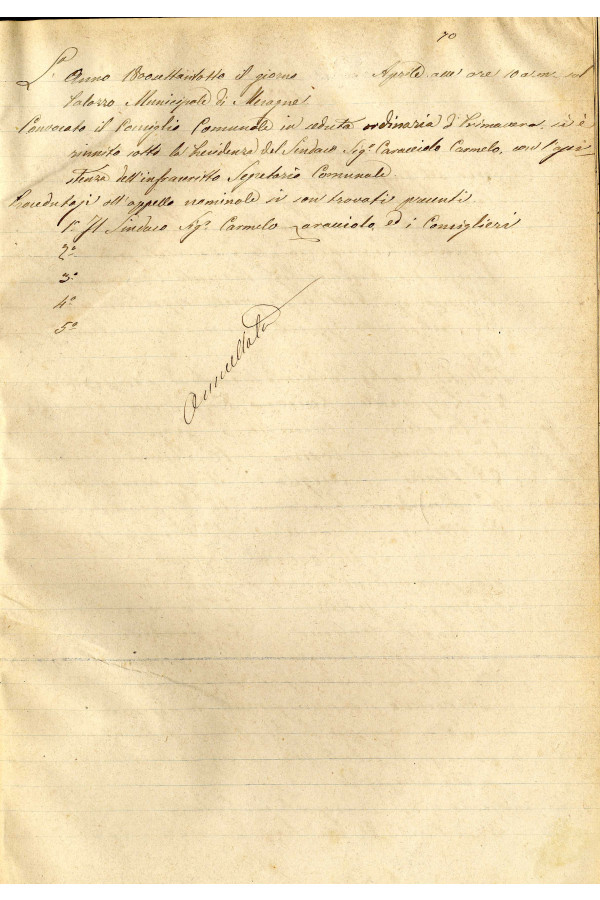 70
L'Anno 1800ottantotto il giorno Aprile alle ore 10 a.m. nel
Palazzo Municipale di Mesagne
Convocato il Consiglio Comunale in seduta ordinaria di Primavera, si è
riunito sotto la Presidenza del Sindaco Sig.r Caracciolo Carmelo, con l'assi-
stenza dell'infrascritto Segretario Comunale.
Procedutosi all'appello nominale si son trovati presenti
1.° Il Sindaco Sig.r Carmelo Caracciolo, ed i Consiglieri
2.°
3.°
4.°
5.°
Annullato